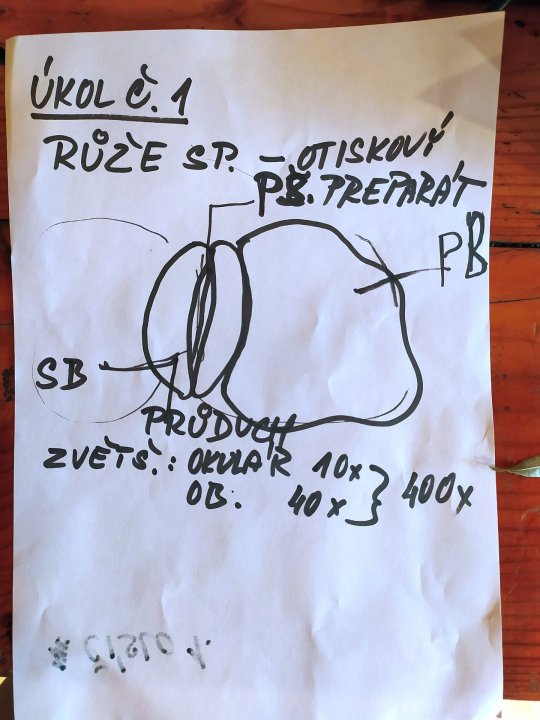 ÚKOL Č. 1
RŮŽE SP. – OTISKOVÝ
PŠ. PREPARÁT
PB
SB
PRŮDUCH
ZVĚTŠ.: OKULÁR 10x
OB. 40x } 400x
* číslo 1.